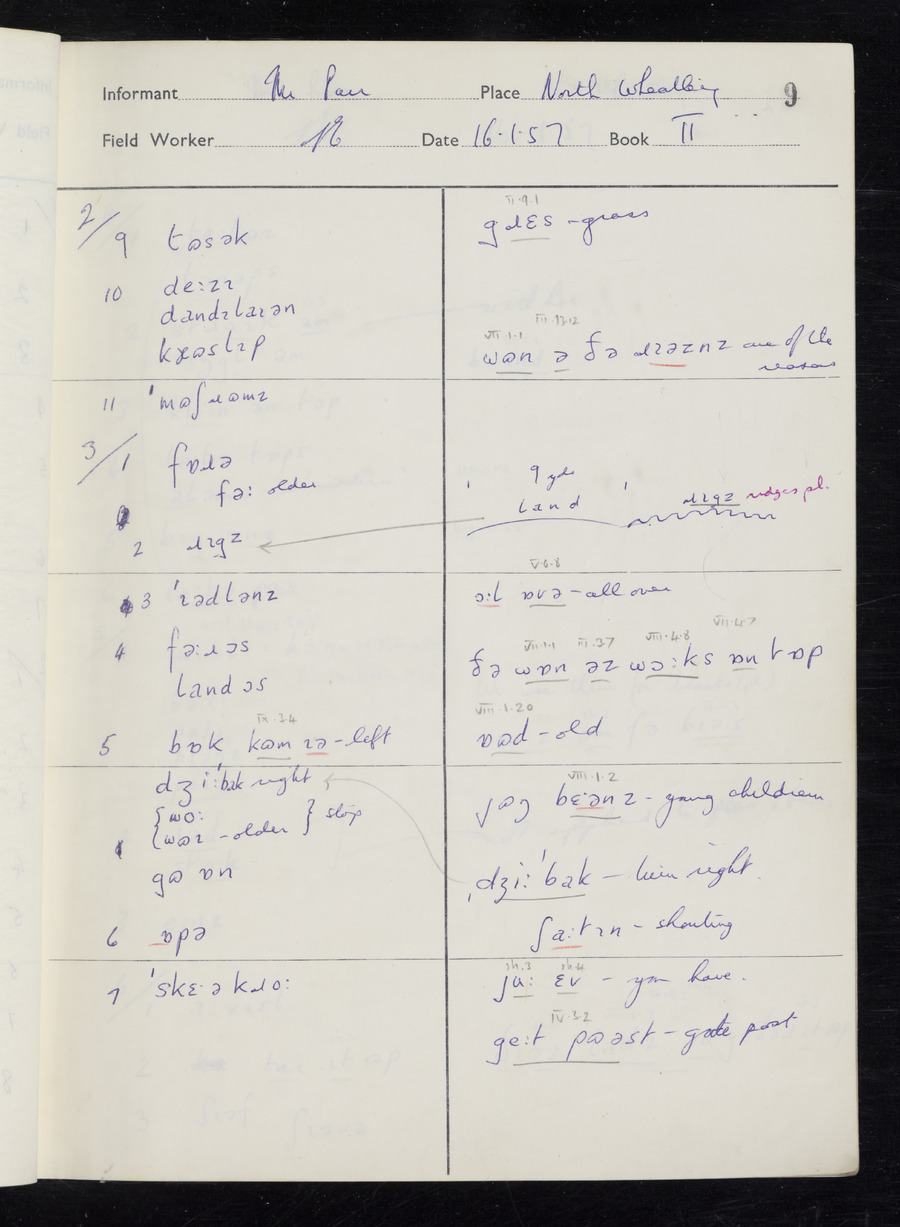 Informant Mr Parr Place North Wheatley 9
Field Worker Date 16.1.57 Book II
2/9 tɷsək
10 de:zɪ
dandɪlaɪən
kɹɷslɪp
11 ˈmɷʃɹɷmz
3/1 fɒɹə
fə: older
2 ɹɪgz
3 ˈɪədlənz
4 fə:ɹəs
landəs
5 bɒk IX.3.4 kɷm ɪə - left
dʒi:ˈbak right
wo:
wɷɪ - older } stop
gɷ ɒn
6 ɒpə
7 ˈskɛ·əkɹo:
II.9.1
gɹɛs - grass
VII.1.1 III.13.12
wɷn ə ðə ɹɪəznz one of the
reasons
9 yds
land ɹɪgz ridges pl.
V.6.8
ɔ:l ɒvə - all over
VII.1.1 III.3.7 VIII.4.8 VII.4.7
ðə wɷn əz wɔ:ks ɒn tɒp
VIII.1.20
ɒɷd - old
VIII.1.2
jɷŋ bɛ:ənz - young children
dʒi:ˈbak - turn right.
ʃa:tɪn - shouting
sh.3 sh.4
ju: ɛv - you have.
IV.3.2
ge:t pɷəst - gate post